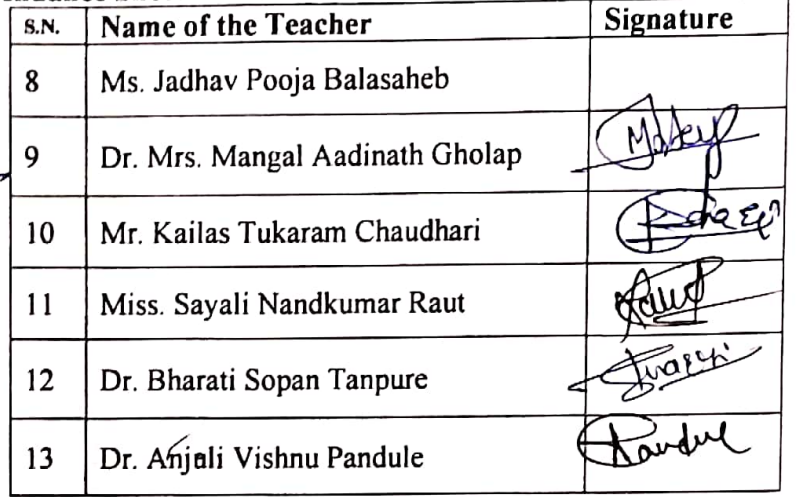 S.N. Name of the Teacher Signature
8 Ms. Jadhav Pooja Balasaheb
9 Dr. Mrs. Mangal Aadinath Gholap
10 Mr. Kailas Tukaram Chaudhari
11 Miss. Sayali Nandkumar Raut
12 Dr. Bharati Sopan Tanpure
13 Dr. Anjali Vishnu Pandule